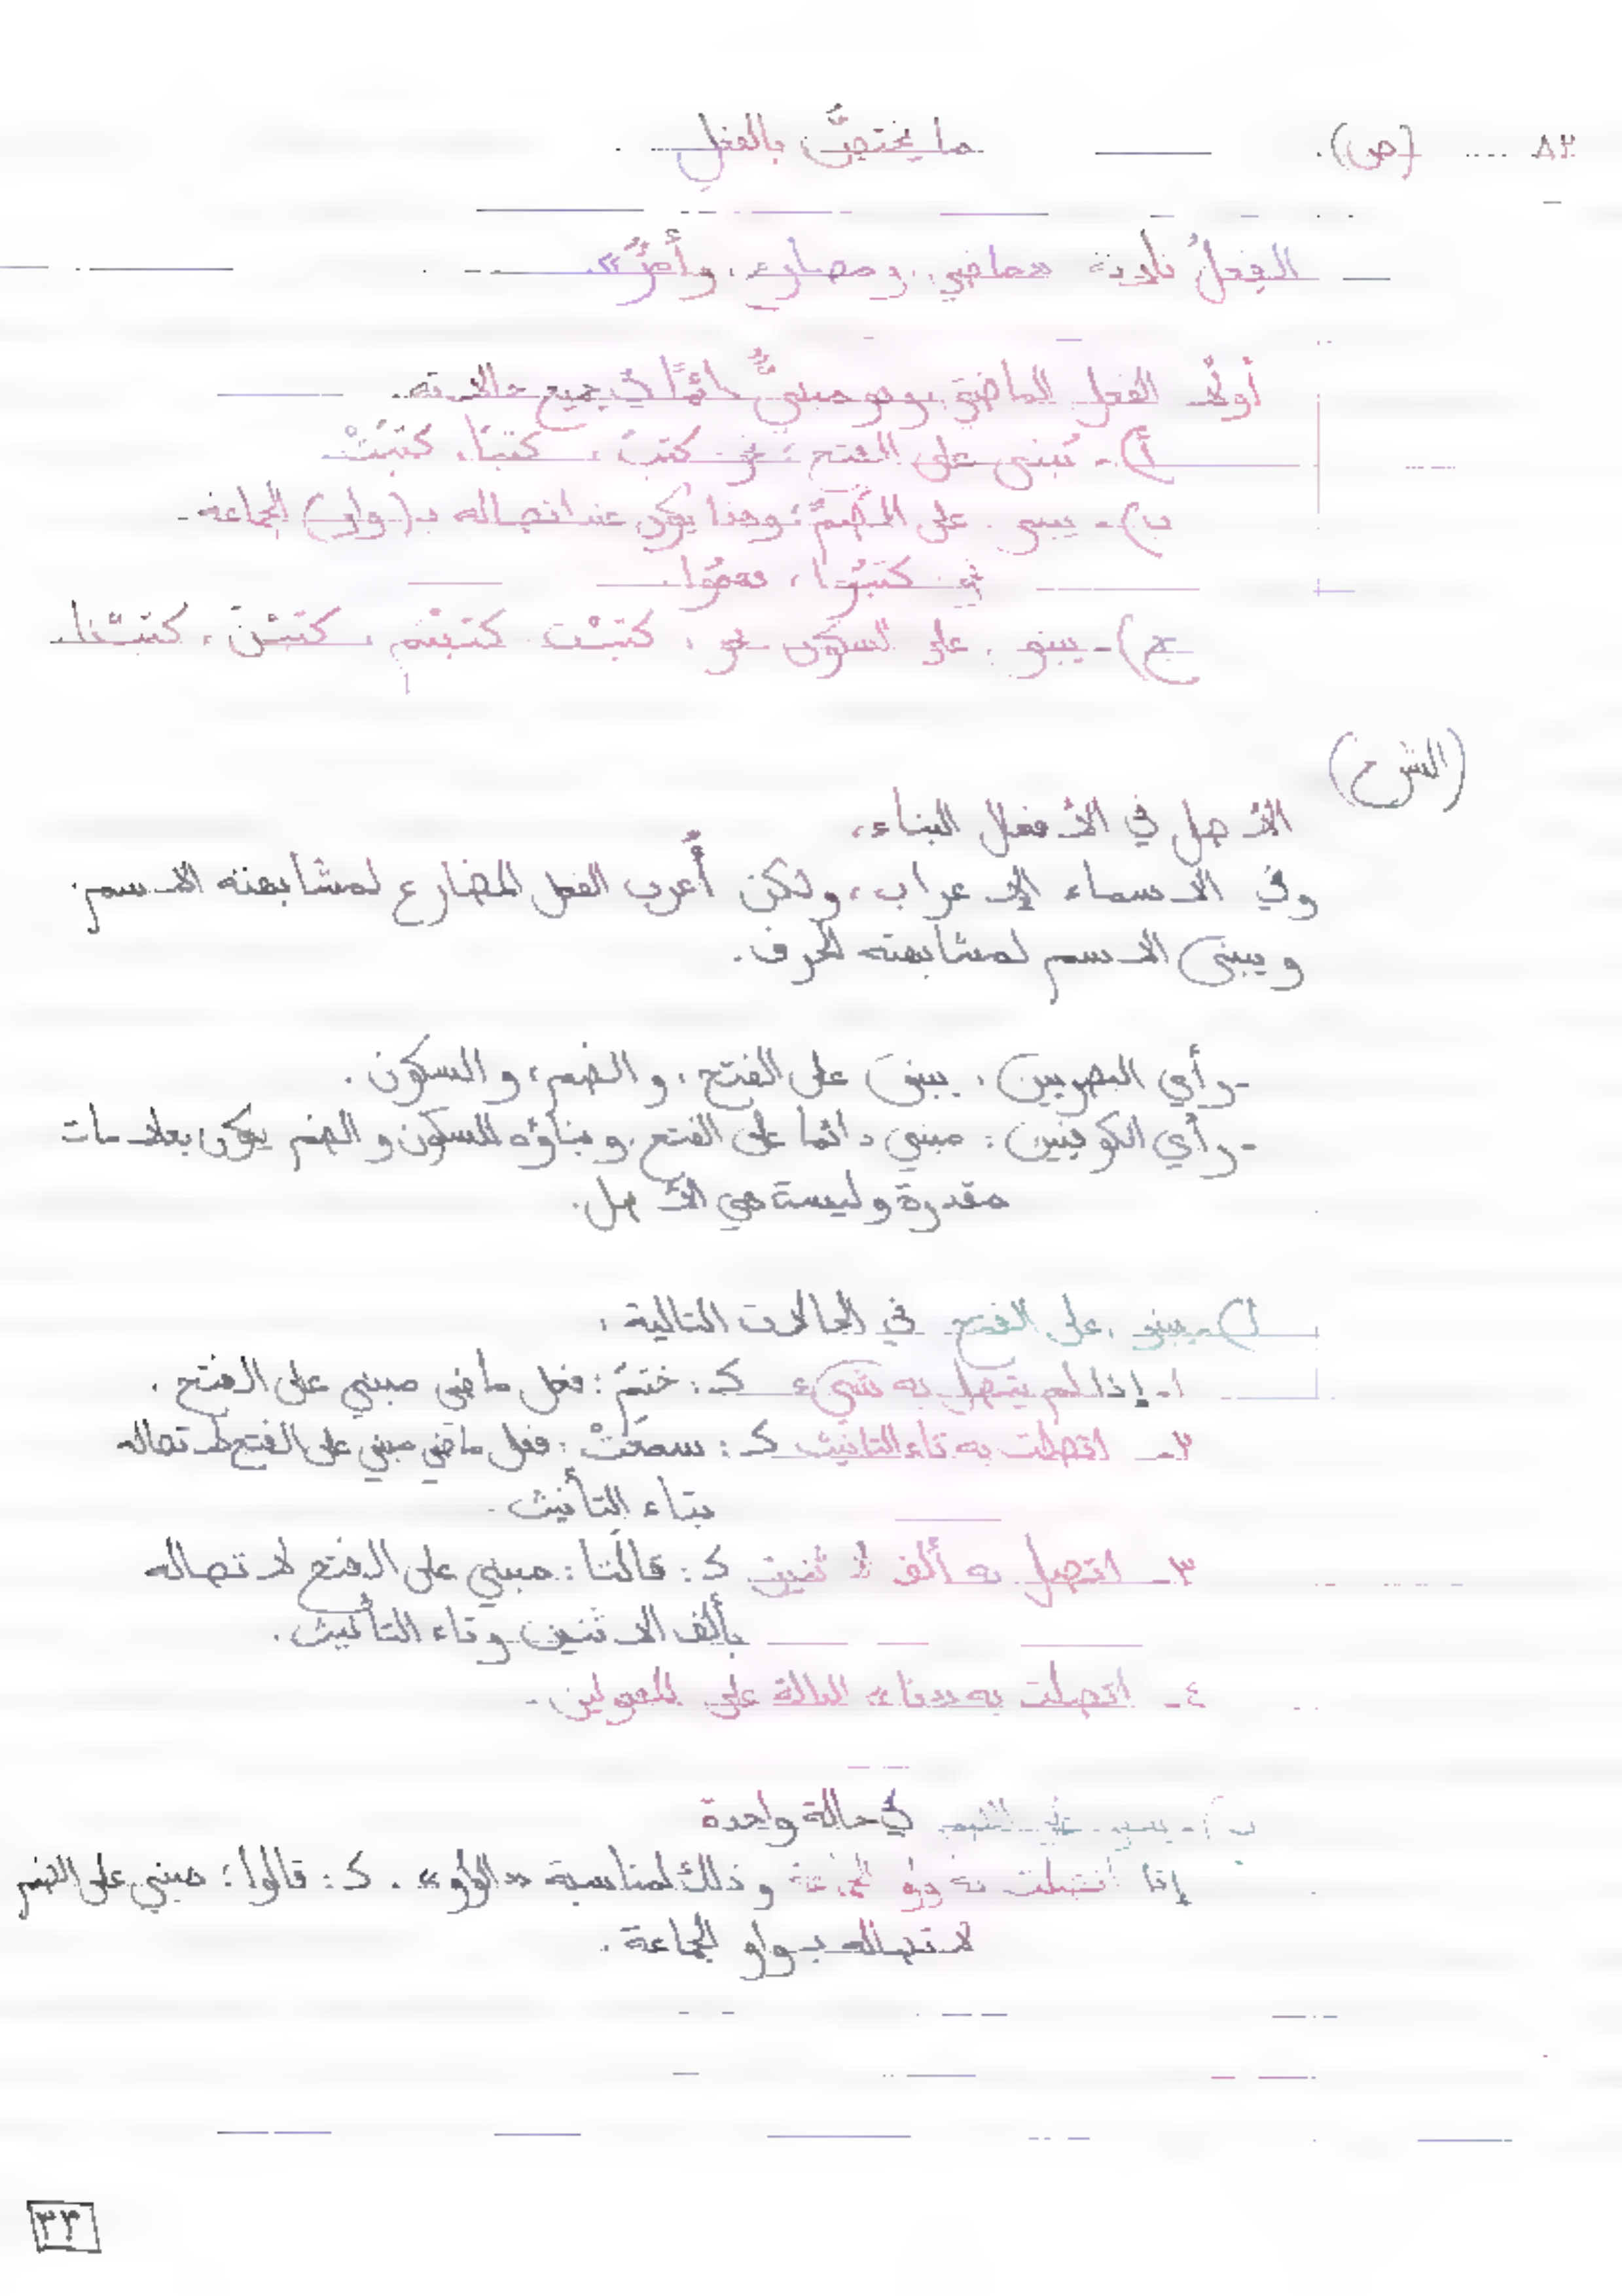 ٨٣ .... (ص). ما يختصُّ بالفعلِ .
الفِعلُ ثلاثة «ماضي، ومضارع، وأمرٌ».
أولًا الفعل الماضي، وهو مبنيٌّ دائمًا في جميع حالاته.
أ) - يُبنى على الفتح؛ نحو: كتبَ، كتبَا، كتبَتْ
ب) - يبنى على الضمِّ؛ وهذا يكون عند اتصاله بـ (واو) الجماعة.
نحو: كتبُوا،
ج) - يبنى على السكون نحو: كتبْت كتبْتم، كتبْنَ، كتبْنا.
(الشرح)
الأصل في الأفعال البناء،
وفي الأسماء الإعراب، ولكن أُعرب الفعل المضارع لمشابهته الاسم.
ويبنى الاسم لمشابهته الحرف.
- رأي البصريين: يبنى على الفتح، والضم، والسكون.
- رأي الكوفيين: مبني دائما على الفتح، وبناؤه للسكون والضم يكون بعلامات
مقدرة وليسة هي الأصل.
أ) - يبنى على الفتح في الحالات التالية:
١- إذا لم يتصل به شيء كـ: ختمَ: فعل ماضي مبني على الفتح.
٢- اتصلت به تاء التانيث كـ: سمعَتْ: فعل ماضي مبني على الفتح لاتصاله
بتاء التأنيث.
٣- اتصل به ألف الاثنين كـ: قالَتا: مبني على الفتح لاتصاله
بألف الاثنين وتاء التأنيث.
٤- اتصلت به «نا» الدالة على المفعولين.
ب) - يبنى على الضم في حالة واحدة
إذا اتصلت به واو الجماعة وذلك لمناسبة «الواو». كـ: قالوا: مبني على الضم
لاتصاله بـواو الجماعة.
٣٣